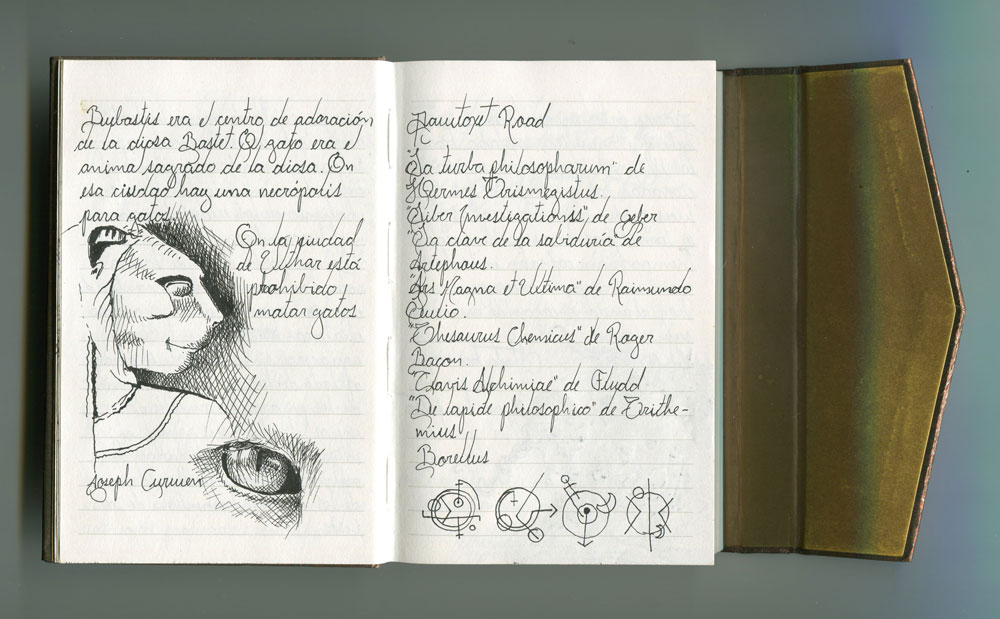 Bubastis era el centro de adoración
de la diosa Bastet. El gato era el
anima sagrado de la diosa. En
esa ciudad hay una necrópolis
para gatos.
En la ciudad
de Ulthar está
prohibido
matar gatos
Joseph Curwen
Pawtoxt Road
"La turba philosopharum" de
Hermes Trismegistus.
"Liber Investigationis" de Geber
"La clave de la sabiduría de
Artephous.
"Ars Magna et Ultima" de Raimundo
Lulio.
"Thesaurus Chemicus" de Roger
Bacon.
"Clavis Alchimiae" de Fludd
"De lapide philosophico" de Trithe-
mius.
Borellus